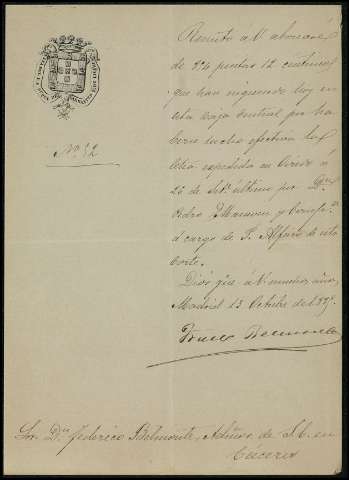 Remito á V. abonaré
de 724 pesetas 12 centimos
que han ingresado hoy en
esta Caja Central por ha-
berse hecho efectiva la
letra expedida en Oviedo á
26 de Set. último por Dn.
Pedro Masaveu y Comp.ª
á cargo de P. Alfaro de esta
Corte.
Dios gue á V. muchos años
Madrid 13 Octubre de
Nº 52
Sor. Dn. Federico Belmonte, Admor. de S.E. en
Cáceres